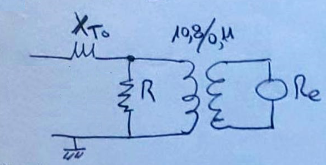 XTo
10,8/0,4
R
Re